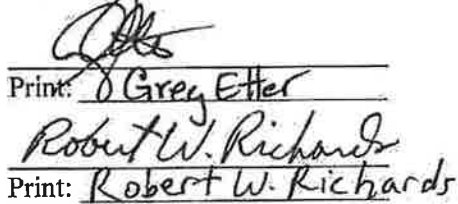 Print: Greg Etter
Robert W. Richards
Print: Robert W. Richards